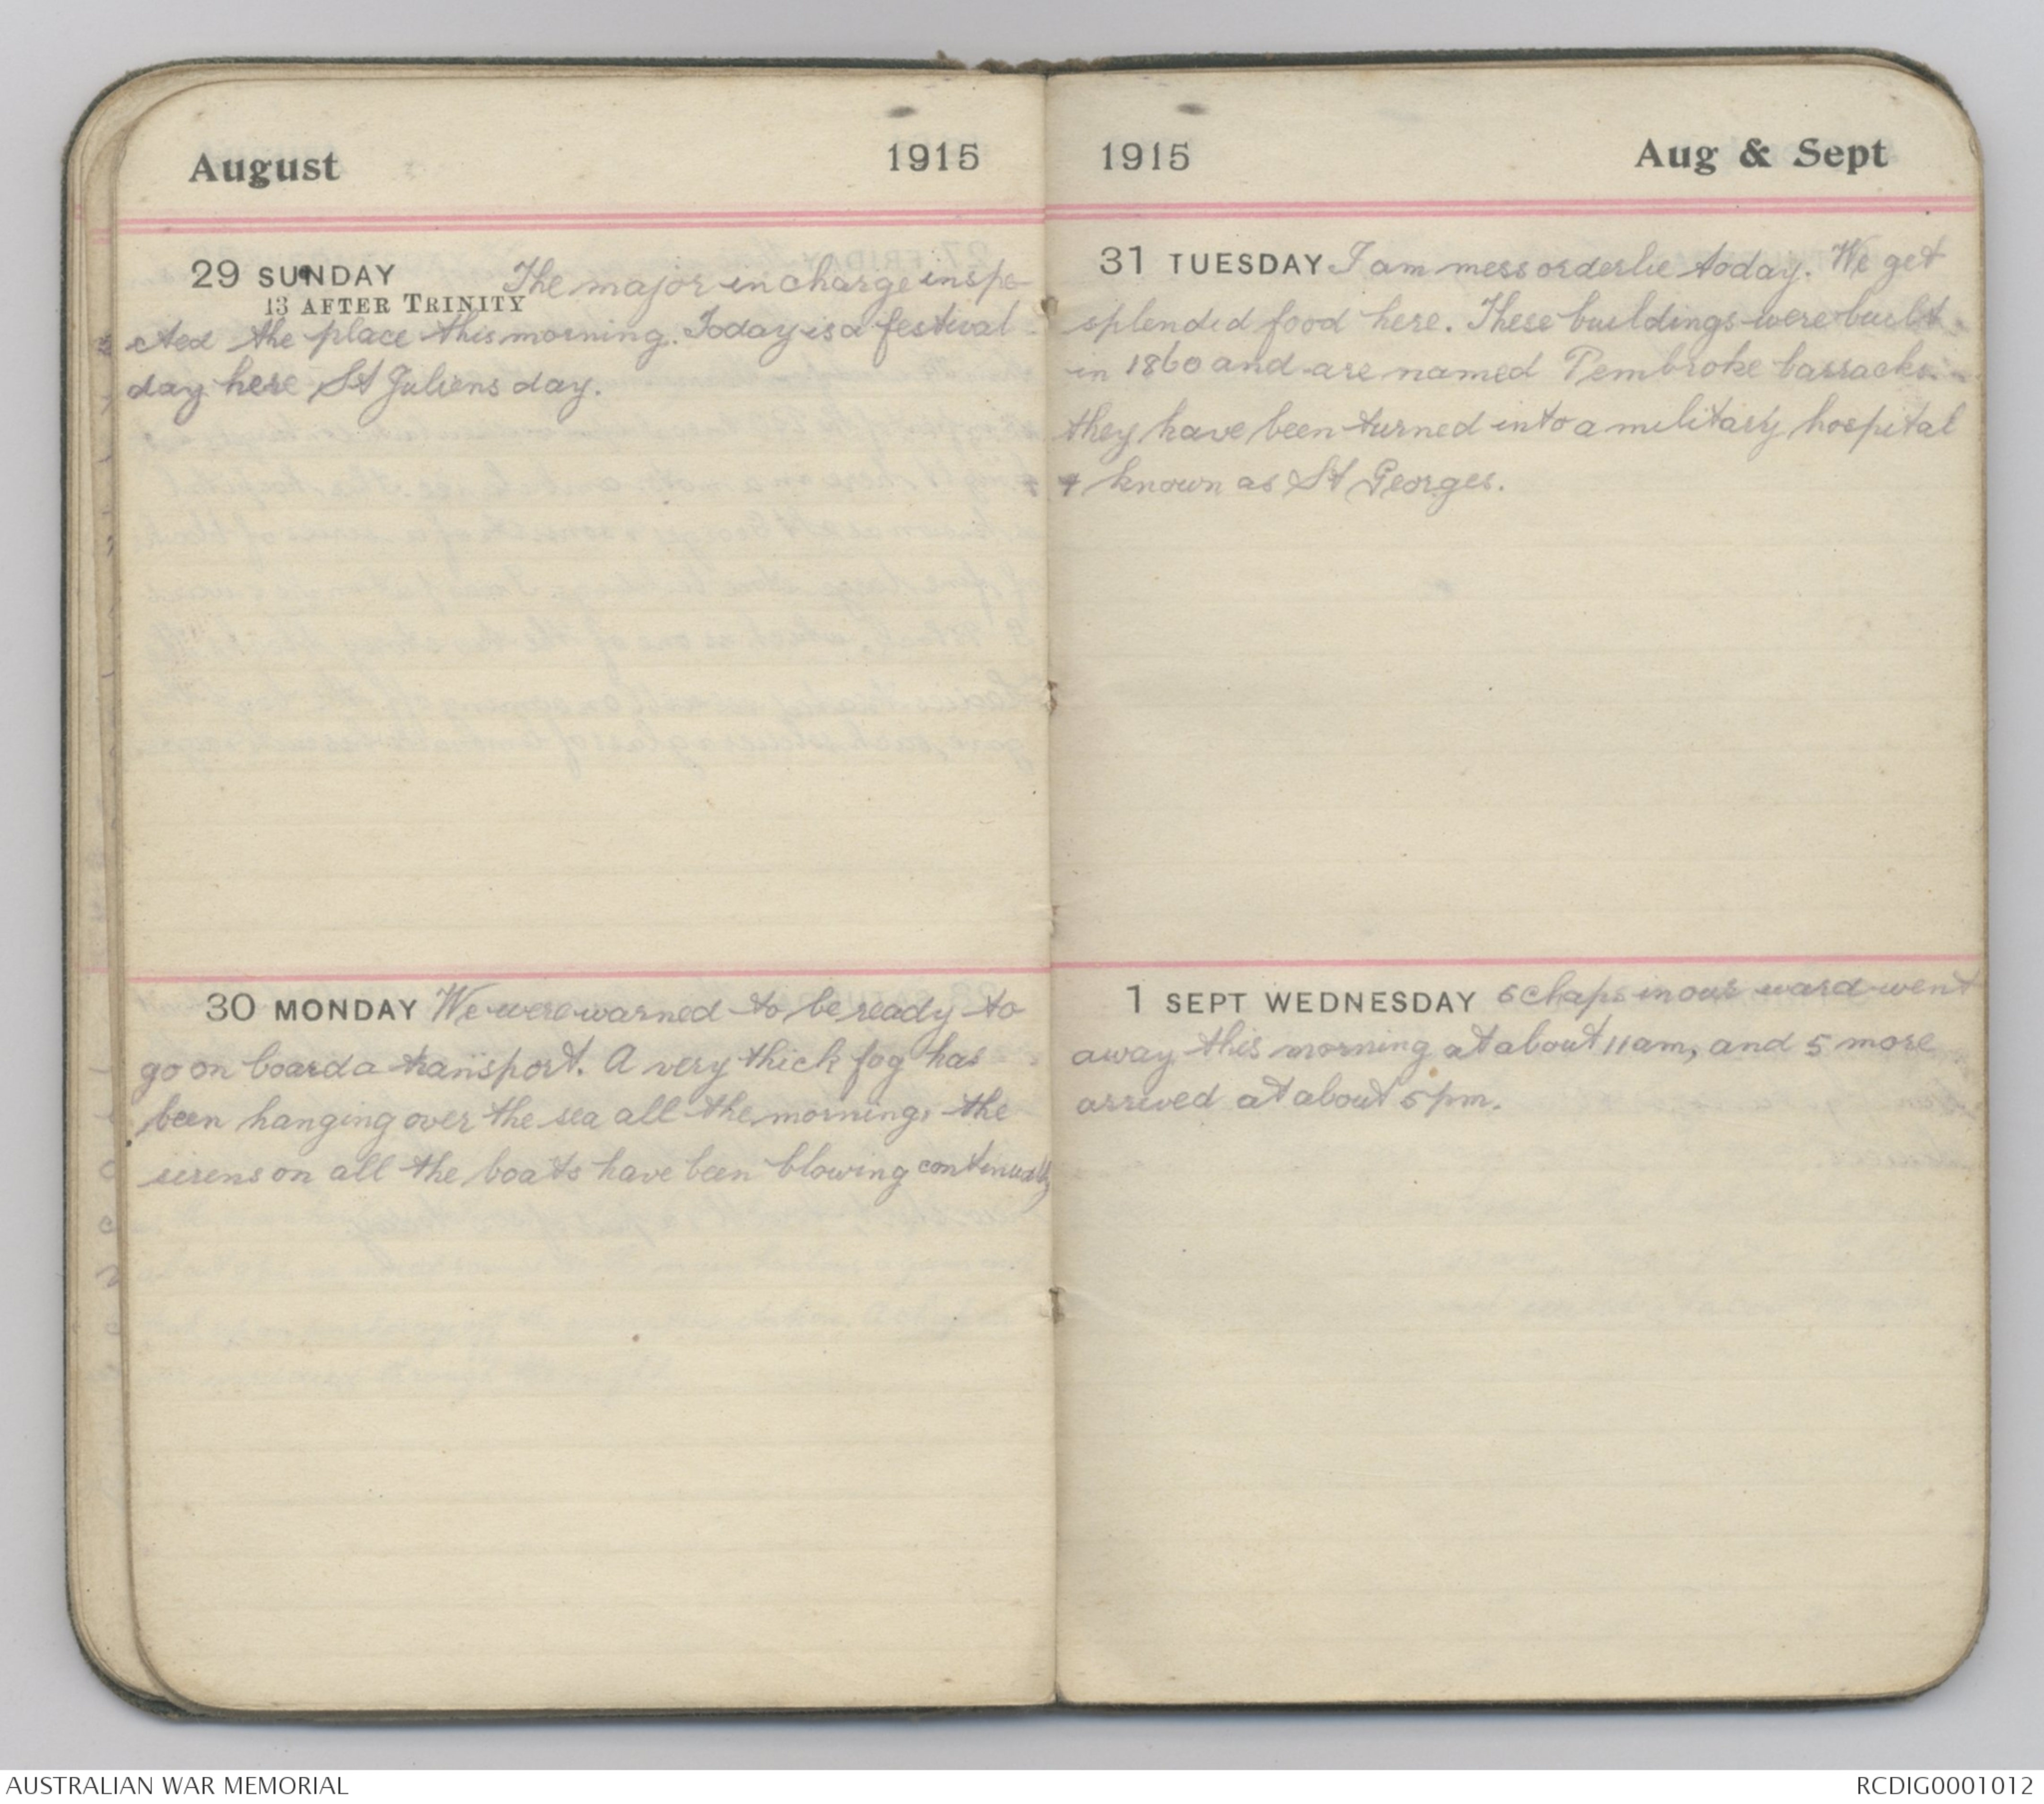 August 1915
29 SUNDAY The major in charge inspe-
13 AFTER TRINITY
cted the place this morning. Today is a festival
day here St Juliens day.
30 MONDAY We were warned to be ready to
go on board a transport. A very thick fog has
been hanging over the sea all the morning, the
sirens on all the boats have been blowing continually
1915 Aug & Sept
31 TUESDAY I am mess orderlie today. We get
splendid food here. These buildings were built
in 1860 and are named Pembroke barracks.
they have been turned into a military hospital
& known as St Georges.
1 SEPT WEDNESDAY 5 chaps in our ward went
away this morning at about 11am, and 5 more
arrived at about 5pm.
AUSTRALIAN WAR MEMORIAL
RCDIG0001012